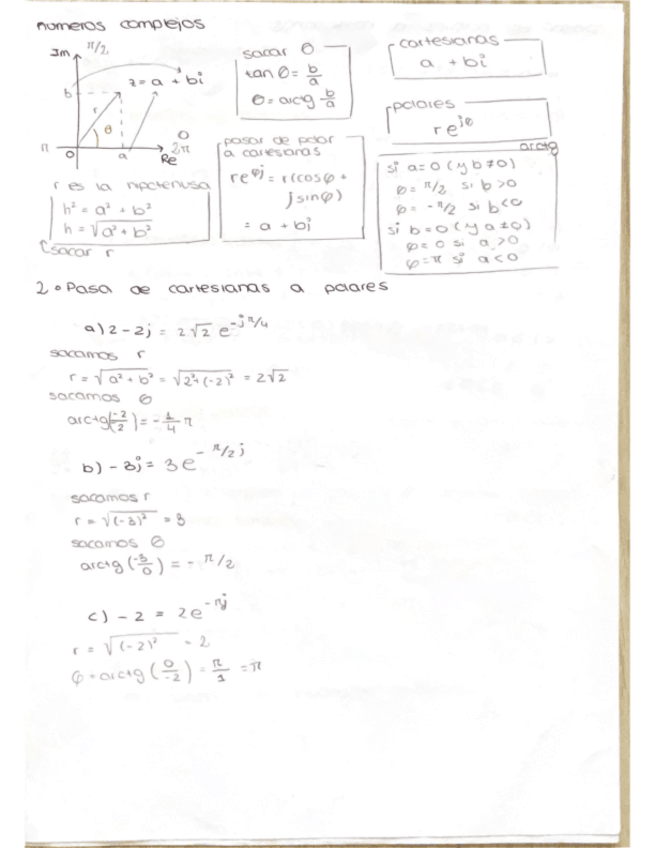 numeros complejos
Im π/2
z = a + bi
b
r
θ
π
0
a
Re
0
2π
r es la hipotenusa
h² = a² + b²
h = √(a² + b²)
↑sacar r
sacar θ
tan θ = b/a
θ = arctg b/a
pasar de polar
a cartesianas
re^φj = r(cosφ +
jsinφ)
= a + bi
cartesianas
a + bi
polares
re^jθ
arctg
si a=0 (y b≠0)
φ = π/2 si b>0
φ = -π/2 si b<0
si b=0 (y a≠0)
φ=0 si a>0
φ=π si a<0
2. Pasa de cartesianas a polares
a) 2-2j = 2√2 e^-jπ/4
sacamos r
r = √(a² + b²) = √(2²+(-2)²) = 2√2
sacamos θ
arctg(-2/2) = -1/4 π
b) -3j = 3e^-π/2 j
sacamos r
r = √(-3)² = 3
sacamos θ
arctg(-3/0) = -π/2
c) -2 = 2e^-πj
r = √(-2)² = 2
φ = arctg(0/-2) = π/1 = π